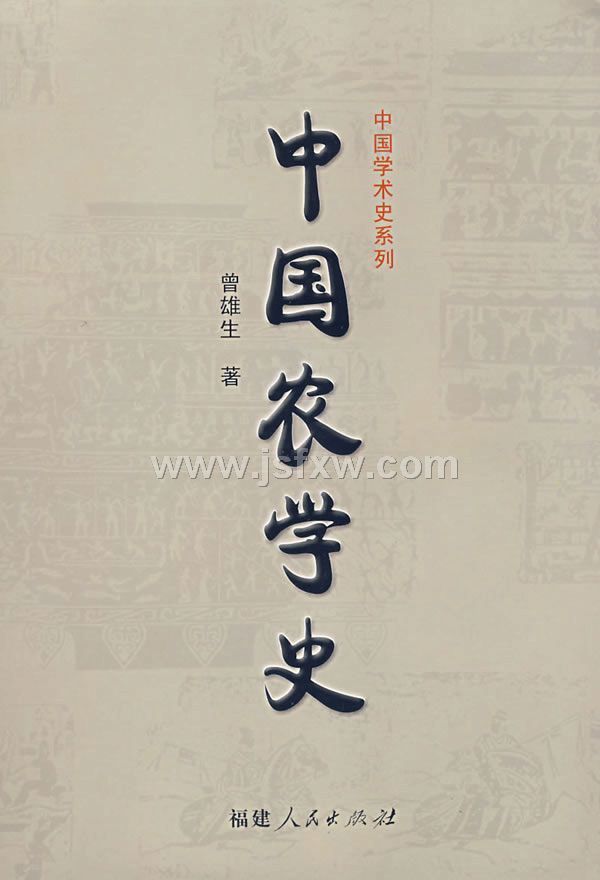 中国学术史系列
中国农学史
曾雄生 著
www.jsfxw.com
福建人民出版社